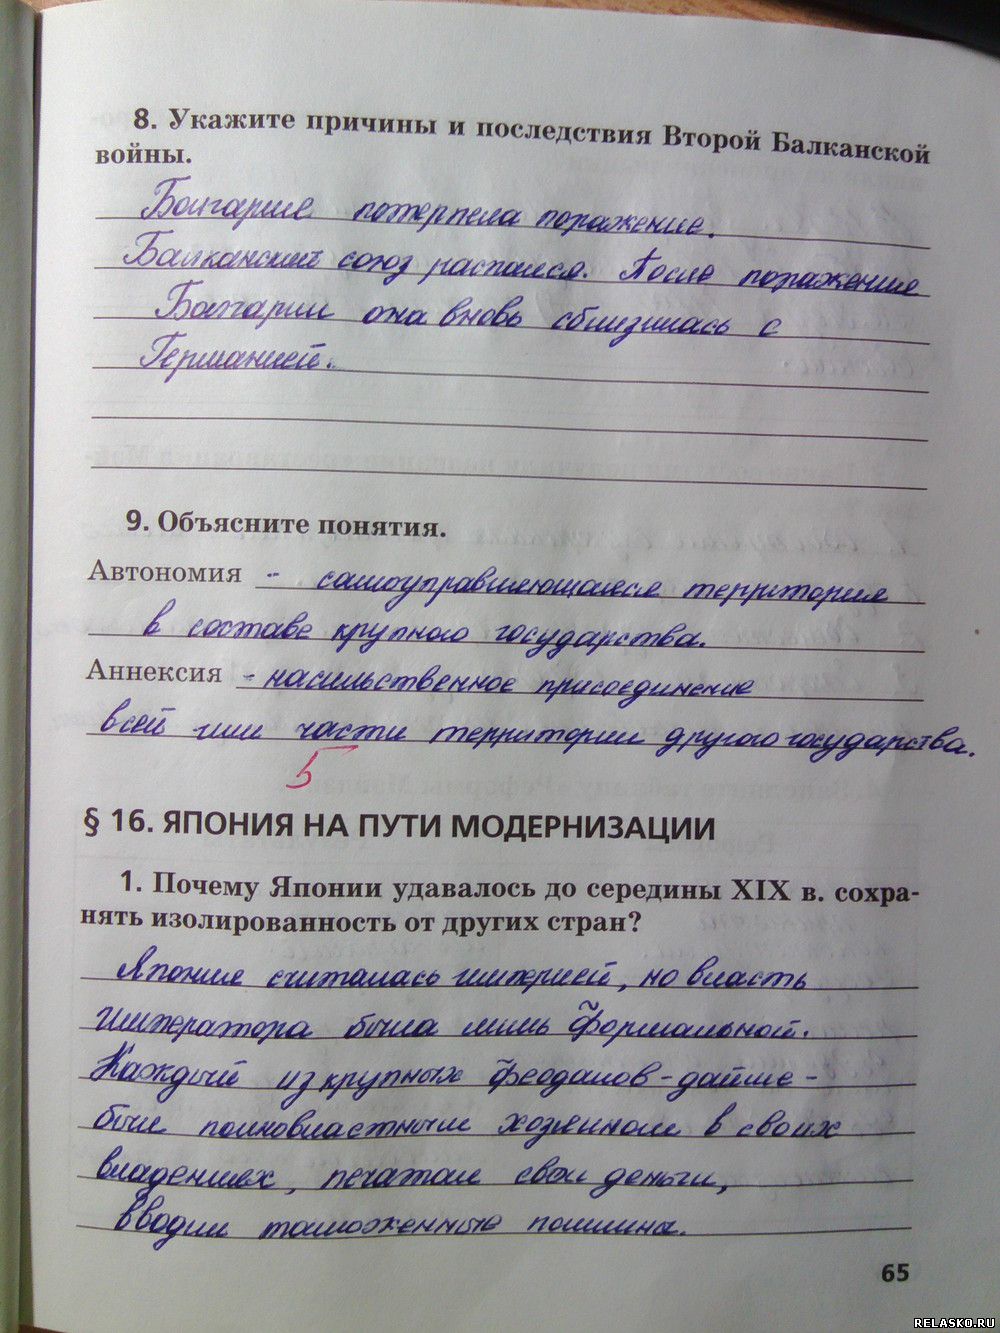 8. Укажите причины и последствия Второй Балканской
войны.
Болгария потерпела поражение.
Балканский союз распался. После поражения
Болгарии она вновь сблизилась с
Германией.
9. Объясните понятия.
Автономия - самоуправляющаяся территория
в составе крупного государства.
Аннексия - насильственное присоединение
всей или части территории другого государства.
5
§ 16. ЯПОНИЯ НА ПУТИ МОДЕРНИЗАЦИИ
1. Почему Японии удавалось до середины XIX в. сохра-
нять изолированность от других стран?
Япония считалась империей, но власть
императора была лишь формальной.
Каждый из крупных феодалов - дайме -
был полновластным хозяином в своих
владениях, печатал свои деньги,
вводил таможенные пошлина.
65
RELASKO.RU